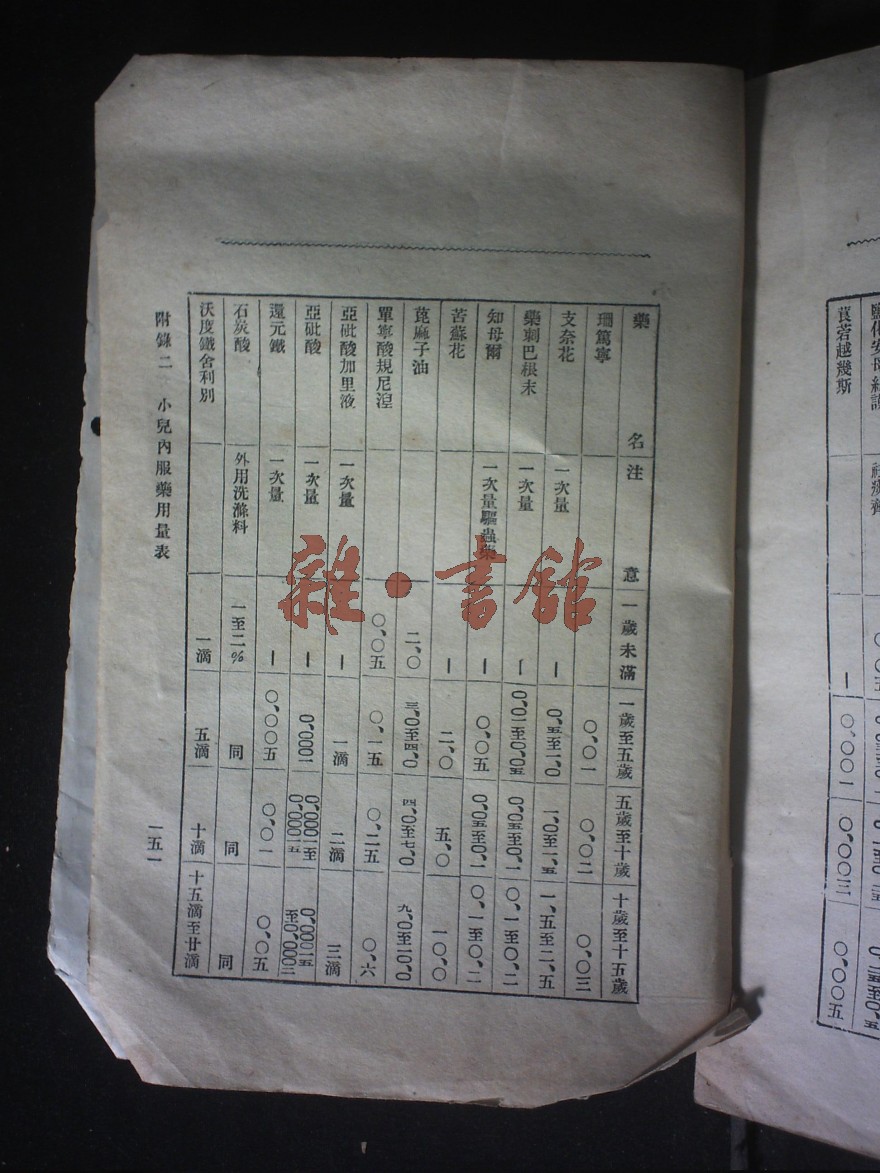 藥名 注意 一歲未滿 一歲至五歲 五歲至十歲 十歲至十五歲
珊篤寧 〇、〇一 〇、〇二 〇、〇三
支奈花 一次量 ー 〇、五至一、〇 一、〇至一、五 一、五至二、五
藥刺巴根末 一次量 ー 〇、〇一至〇、〇五 〇、〇五至〇、一 〇、一至〇、二
知母爾 一次量驅蟲藥 ー 〇、〇五 〇、〇五至〇、一 〇、一至〇、二
苦蘇花 ー 二、〇 五、〇 一〇、〇
蓖麻子油 二、〇 三、〇至四、〇 四、〇至七、〇 九、〇至一〇、〇
單寧酸規尼涅 〇、〇五 〇、一五 〇、二五 〇、六
亞砒酸加里液 一次量 ー 一滴 二滴 三滴
亞砒酸 一次量 ー 〇、〇〇〇一 〇、〇〇〇一至〇、〇〇〇一五 〇、〇〇〇一五至〇、〇〇〇三
還元鐵 一次量 ー 〇、〇〇五 〇、〇一 〇、〇五
石炭酸 外用洗滌料 一至二% 同 同 同
沃度鐵舍利別 一滴 五滴 十滴 十五滴至廿滴
附錄二 小兒內服藥用量表
一五一
莨菪越幾斯 ー 〇、〇〇一 〇、〇〇三 〇、〇〇五
雜·書館